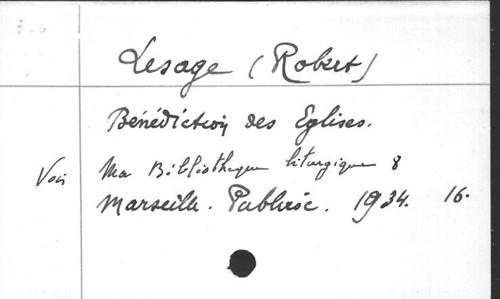 Lesage (Robert)
Bénédiction des Eglises.
Voir Ma Bibliothèque liturgique 8
Marseille. Publiroc. 1934. 16.